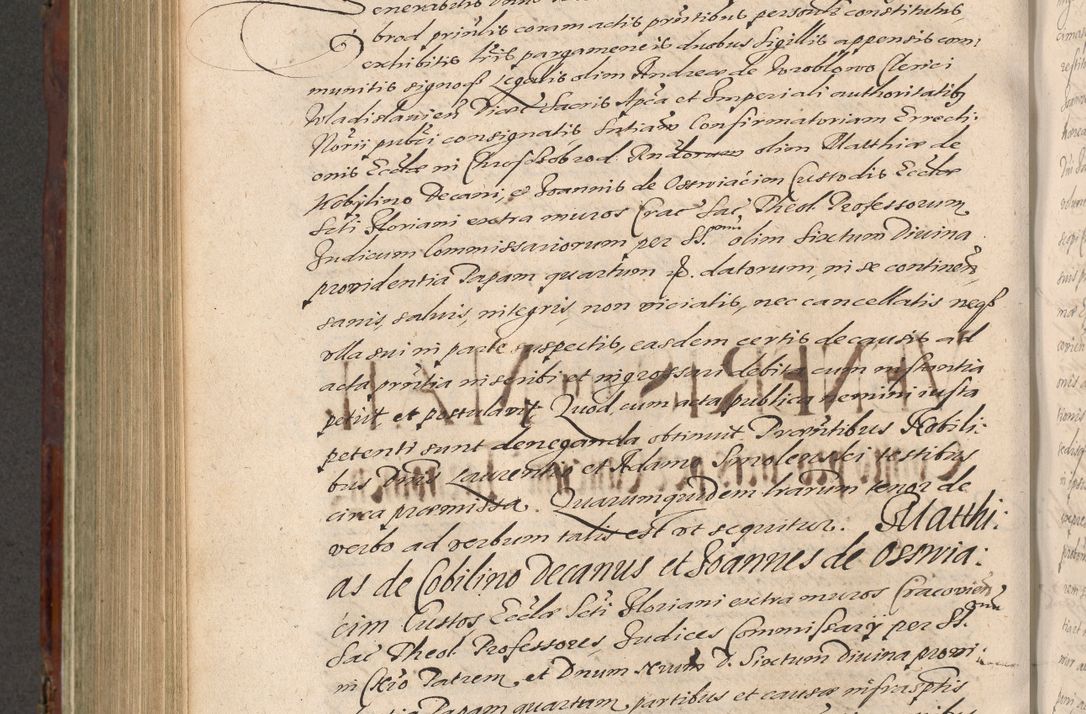 brod prinlis coram actis pñtibus personlr constitutus,
exhibitis lris pargameneis duobus Sigillis appensis com:
munitis signoqꝫ Legalis olim Andreæ de Wroblowo Clerici
Wladislavien Diæc Sacris Apca et Imperiali authoritatibꝫ
Norii pubci consignatis Sntiam Confirmatoriam Errecti:
onis Ecclæ in Chrosczobrod. olim Matthiæ de
Kobilino Decani, et Joannis de Osswiacim Custodis Ecclæ
Scti Floriani extra muros Crac Sac Theol Professorum
Iudicum Commissariorum per SS. olim Sixtum Divina
providentia Papam quartum datorum, in se continen,
sanis, salvis, integris, non viciatis, nec cancellatis neqꝫ
ulla sui in parte suspectis, easdem certis de causis ad
acta pñtia inscribi et ingrossari debita cum instantia
petiit et postulavit. Quod, cum acta publica nemini iusta
petenti sunt deneganda obtinuit. Præsentibus Nobili:
bus Dnis Laurentio et Adamo Smolenski testibus
circa præmissa. Quarumquidem lrarum tenor de
verbo ad verbum talis est ut sequitur. Matthi:
as de Cobilino Decanus et Joannes de Osswia:
cim Custos Ecclæ Scti Floriani extra muros Cracovien
Sac Theol Professores, Iudices Commissary per SS.
in Chro Patrem, et Dnum Dnum D. Sixtum Divina provi:
Papam quartum, partibus et causæ infrasptis